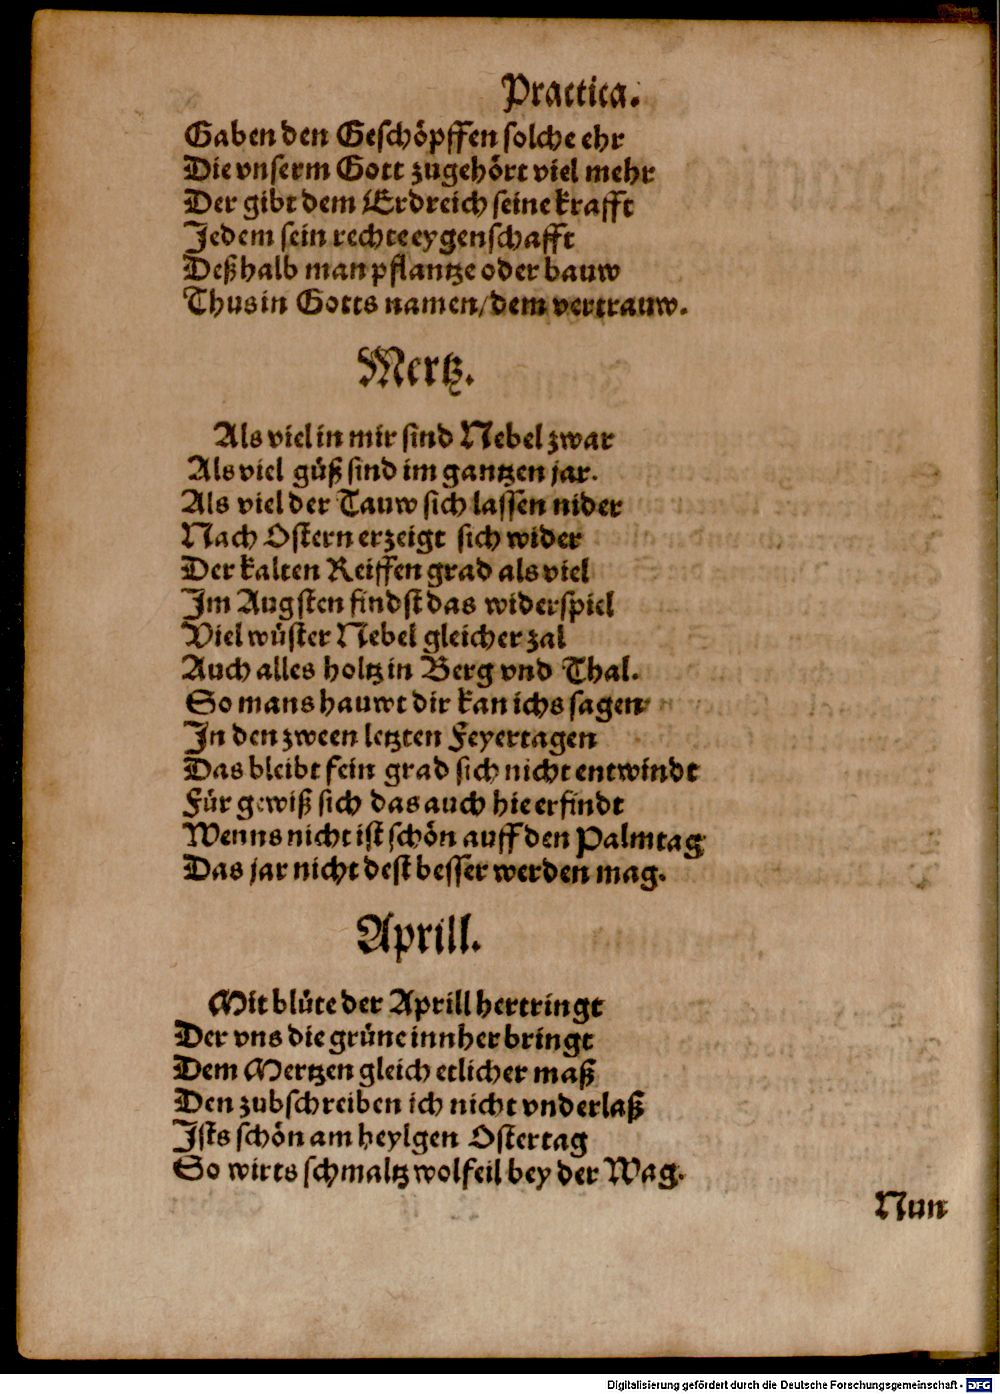 Practica.
Gaben den Geschöpffen solche ehr
Die vnserm Gott zugehört viel mehr
Der gibt dem Erdreich seine krafft
Jedem sein rechte eygenschafft
Deßhalb man pflantze oder bauw
Thus in Gotts namen/dem vertrauw.
Mertz.
Als viel in mir sind Nebel zwar
Als viel güß sind im gantzen jar.
Als viel der Tauw sich lassen nider
Nach Ostern erzeigt sich wider
Der kalten Reiffen grad als viel
Im Augsten findst das widerspiel
Viel wüster Nebel gleicher zal
Auch alles holtz in Berg vnd Thal.
So mans hauwt dir kan ichs sagen
In den zween letzten Feyertagen
Das bleibt fein grad sich nicht entwindt
Für gewiß sich das auch hie erfindt
Wenns nicht ist schön auff den Palmtag
Das jar nicht dest besser werden mag.
Aprill.
Mit blüte der Aprill hertringt
Der vns die grüne innher bringt
Dem Mertzen gleich etlicher maß
Den zubschreiben ich nicht vnderlaß
Ists schön am heylgen Ostertag
So wirts schmaltz wolfeil bey der Wag.
Nun
Digitalisierung gefördert durch die Deutsche Forschungsgemeinschaft - DFG